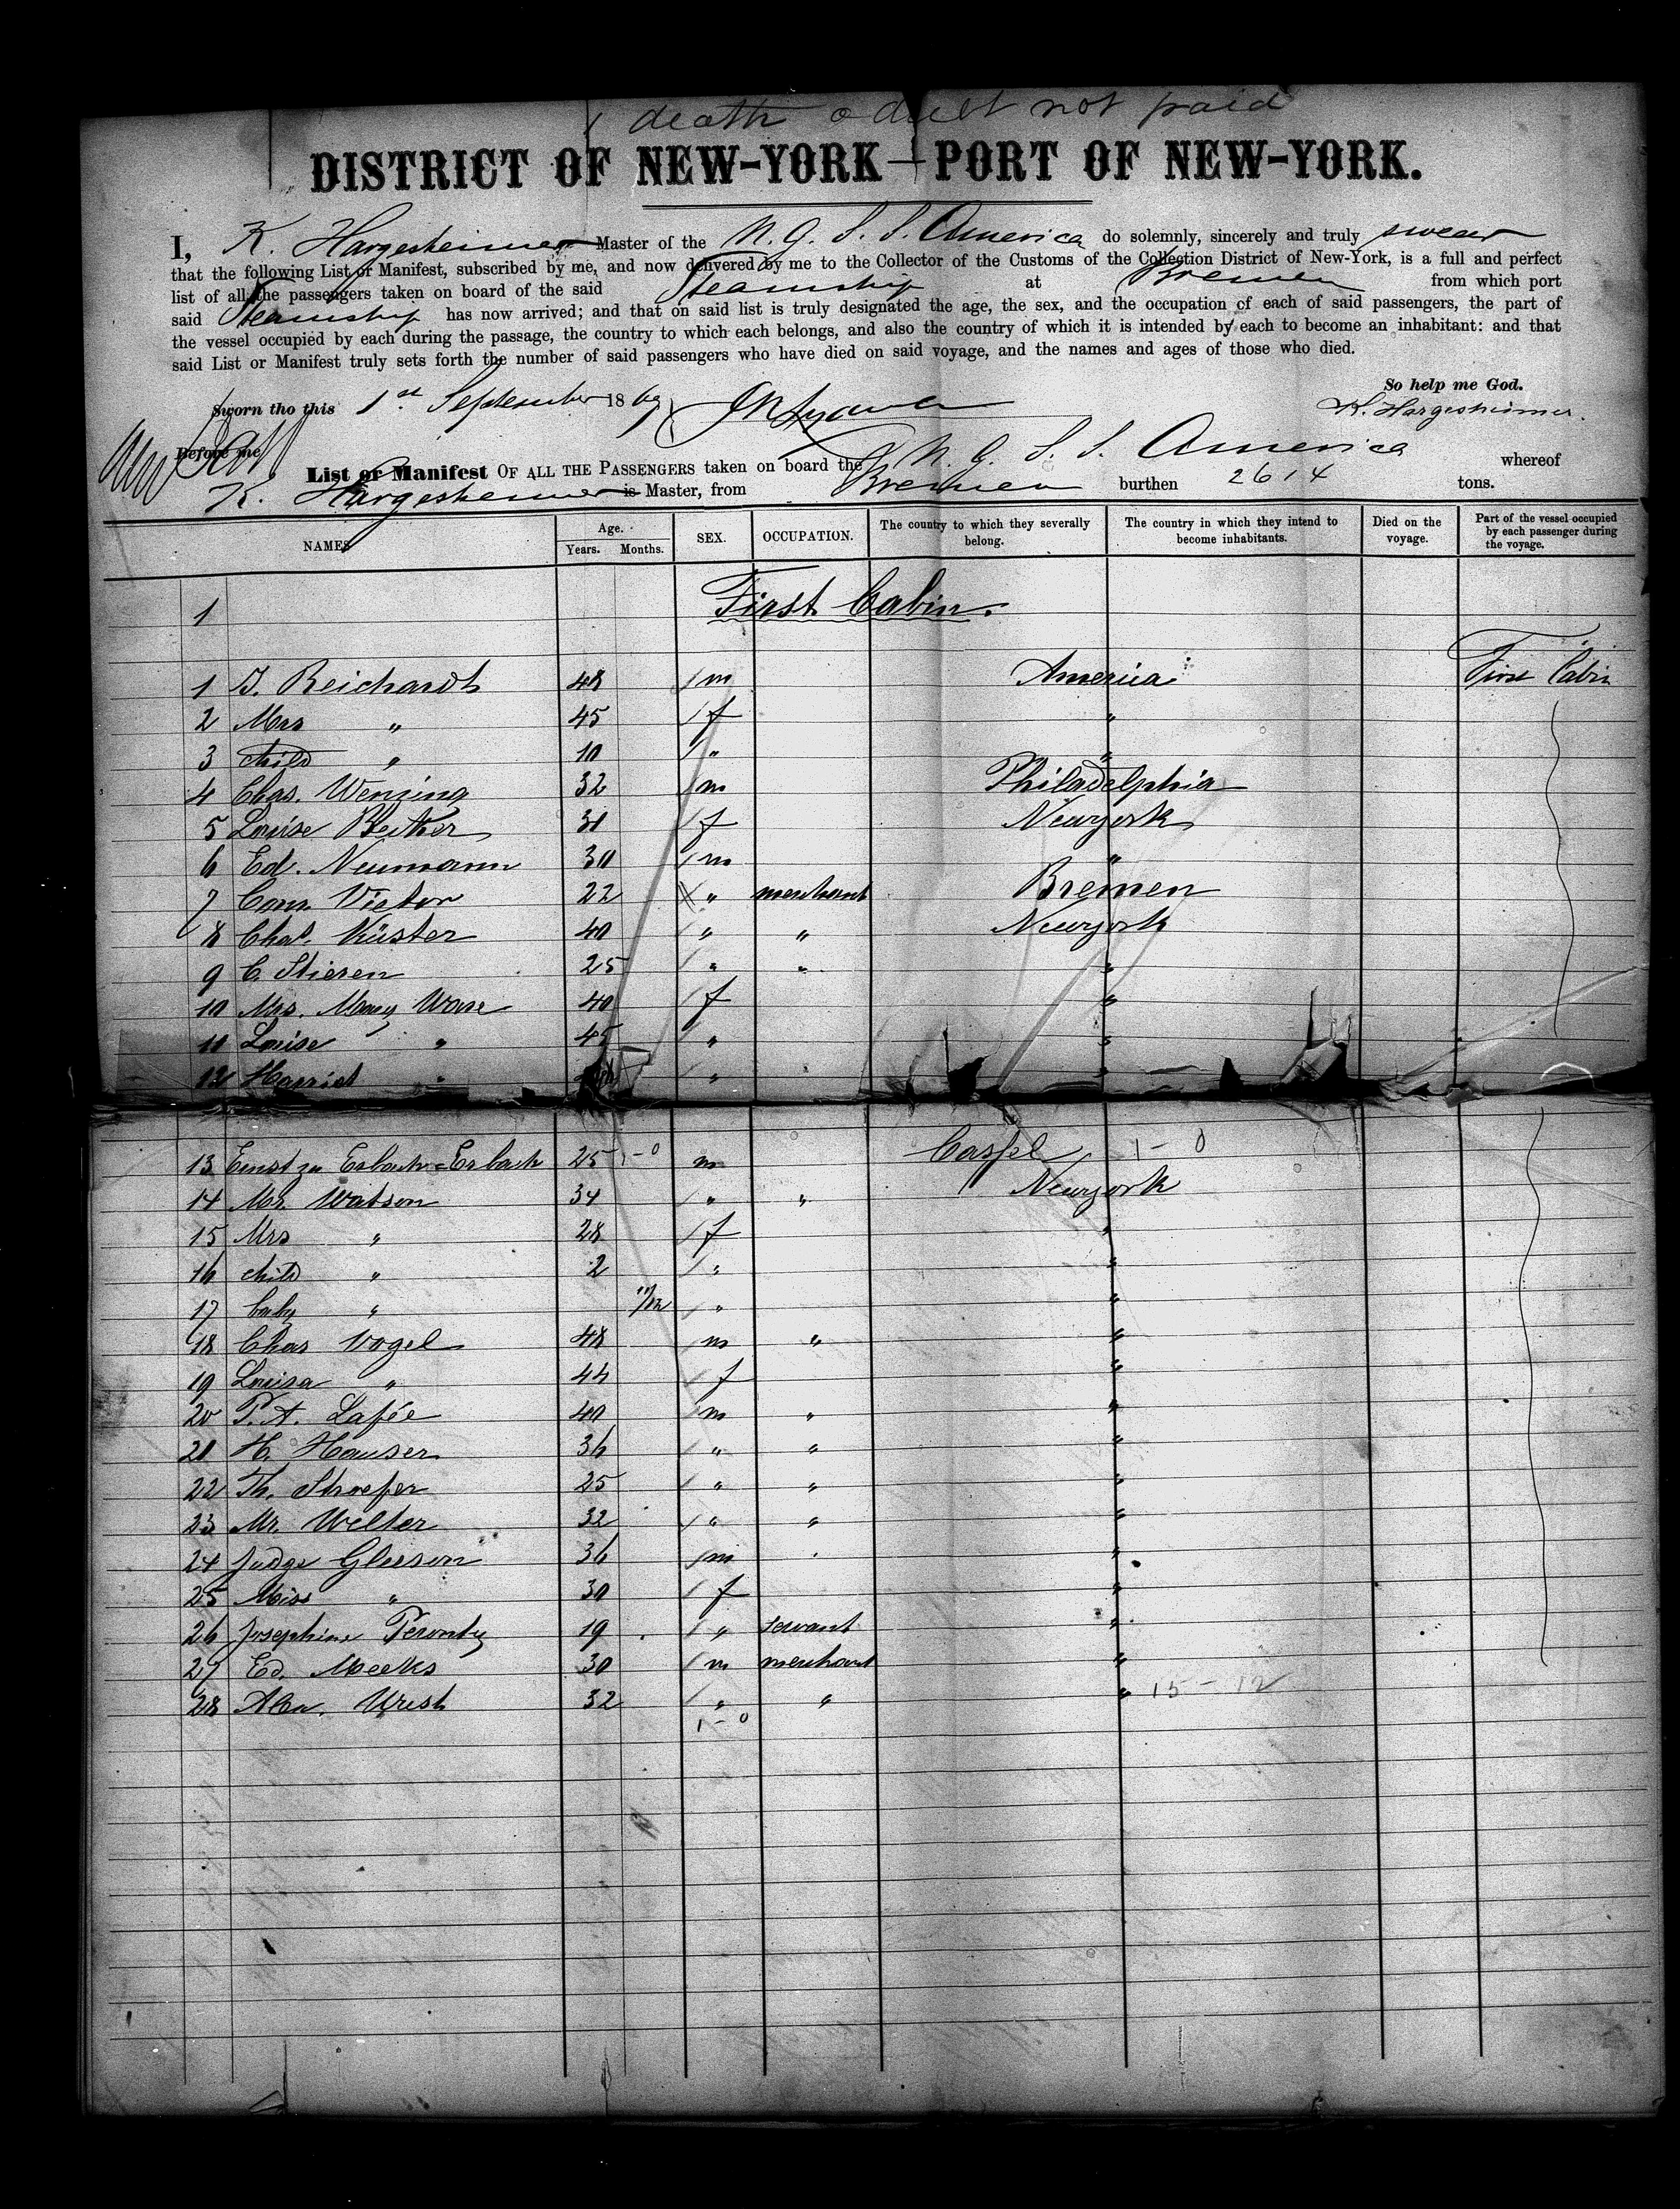 1 death adult not paid
DISTRICT OF NEW-YORK—PORT OF NEW-YORK.
I, K. Hargesheimer Master of the N. G. S. S. America do solemnly, sincerely and truly swear
that the following List or Manifest, subscribed by me, and now delivered by me to the Collector of the Customs of the Collection District of New-York, is a full and perfect
list of all the passengers taken on board of the said Steamship at Bremen from which port
said Steamship has now arrived; and that on said list is truly designated the age, the sex, and the occupation of each of said passengers, the part of
the vessel occupied by each during the passage, the country to which each belongs, and also the country of which it is intended by each to become an inhabitant: and that
said List or Manifest truly sets forth the number of said passengers who have died on said voyage, and the names and ages of those who died.
So help me God.
Sworn tho this 1st September 1869 K. Hargesheimer.
Before me
List or Manifest OF ALL THE PASSENGERS taken on board the N. G. S. S. America whereof
K. Hargesheimer is Master, from Bremen burthen 2614 tons.
NAMES Age. Years. Months. SEX. OCCUPATION. The country to which they severally belong. The country in which they intend to become inhabitants. Died on the voyage. Part of the vessel occupied by each passenger during the voyage.
1 First Cabin.
1 Reichardt 48 m America First Cabin
2 Mrs " 45 f "
3 child " 10 " "
4 Chas. Wenzing 32 m Philadelphia
5 Louise Beither 31 f Newyork
6 Ed. Neumann 30 m "
7 Con. Vietor 22 " merchant Bremen
8 Chas. Küster 40 " " Newyork
9 C. Stieren 25 " " "
10 Mrs. Mary Ware 40 f "
11 Louise " 45 " "
12 Harriet " " "
13 Ernst zu Erbach-Erbach 25 1-0 m Cassel 1-0
14 Mr. Watson 34 " " Newyork
15 Mrs " 28 f "
16 child " 2 " "
17 baby " 11/12 " "
18 Chas Vogel 48 m " "
19 Louisa " 44 f "
20 P. A. Lafée 40 m " "
21 H. Hauser 36 " " "
22 Th. Stroefer 25 " " "
23 Mr. Welter 32 " " "
24 Judge Gleeson 36 m "
25 Miss " 30 f "
26 Josephine 19 " servant "
27 Ed. Meeks 30 m merchant "
28 Alex. 32 " " " 15-12
1-0